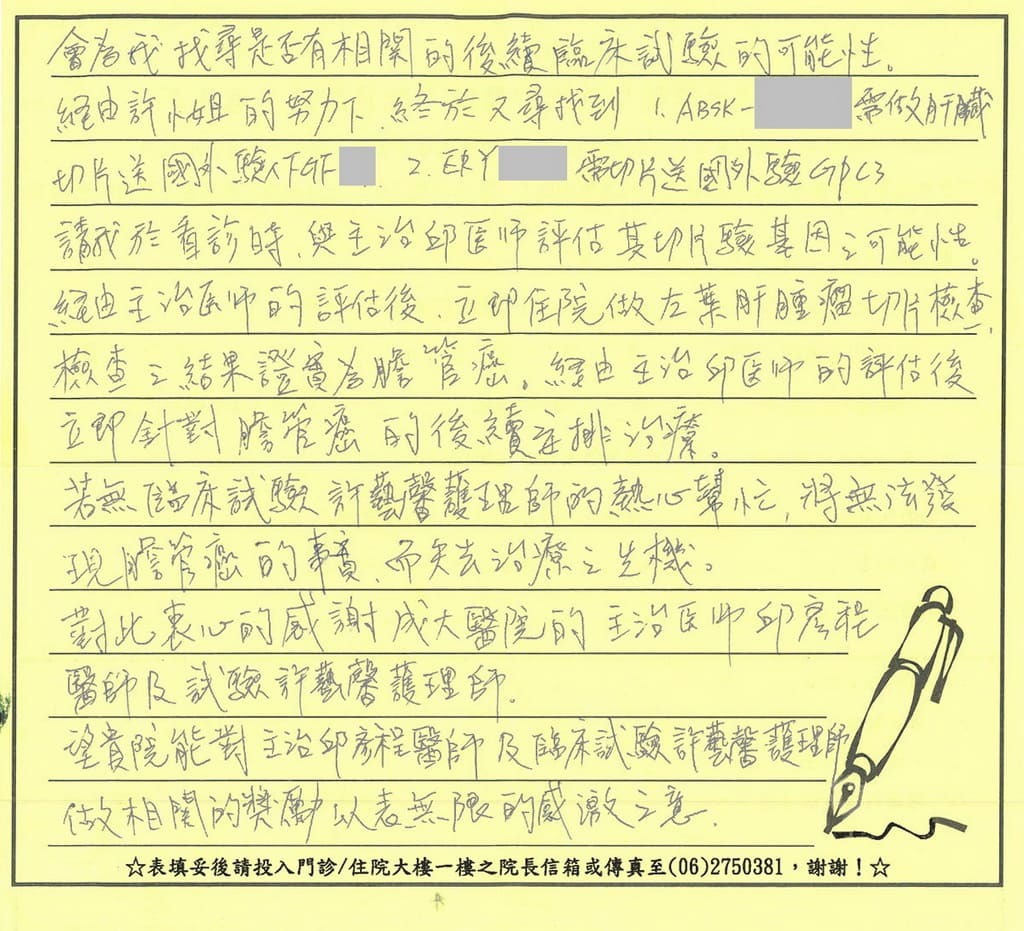 會為我找尋是否有相關的後續臨床試驗的可能性。
經由許小姐的努力下,終於又尋找到 1. ABSK- 需做肝臟
切片送國外驗 FGF 2. ERY 需切片送國外驗GPC3
請我於看診時,與主治邱医师評估其切片驗基因之可能性。
經由主治医师的評估後,立即住院做左葉肝腫瘤切片檢查,
檢查之結果證實為膽管癌。經由主治邱医师的評估後
立即針對膽管癌的後續安排治療。
若無臨床試驗許藝馨護理師的熱心幫忙,將無法發
現膽管癌的事實,而失去治療之先機。
對此衷心的感謝成大醫院的主治医师邱彦程
醫師及試驗許藝馨護理師.
望貴院能對主治邱彦程醫師及臨床試驗許藝馨護理師
做相關的獎勵以表無限的感激之意.
☆表填妥後請投入門診/住院大樓一樓之院長信箱或傳真至(06)2750381,謝謝!☆